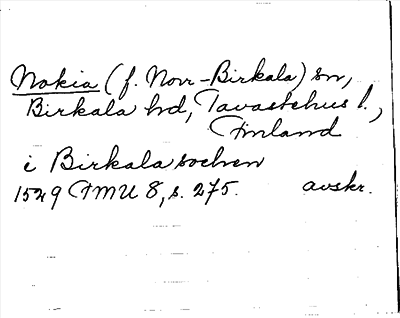 Nokia (f. Norr-Birkala) sn,
Birkala hd, Tavastehus l.,
Finland
i Birkala sochen
1549 FMU 8, s. 275. avskr.